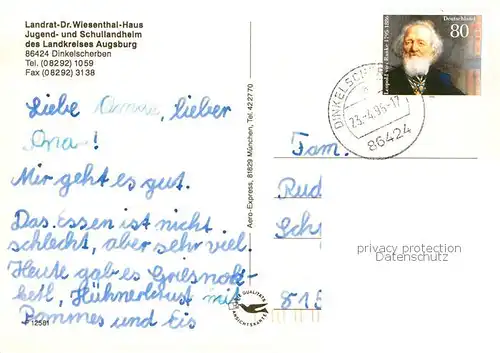 Landrat-Dr. Wiesenthal-Haus
Jugend- und Schullandheim
des Landkreises Augsburg
86424 Dinkelscherben
Tel. (08292) 1059
Fax (08292) 3138
Leopold von Ranke 1795-1886
Deutschland
80
86424
Liebe lieber
Mir geht es gut.
Das Essen ist nicht
schlecht, aber sehr viel.
Heute gab es
Hühnerbrust mit
Pommes und Eis
Aero-Express, 81829 München, Tel. 422770
Fam.
Rud
Sch
privacy protection
Datenschutz
QUALITÄTS
ANSICHTSKARTE